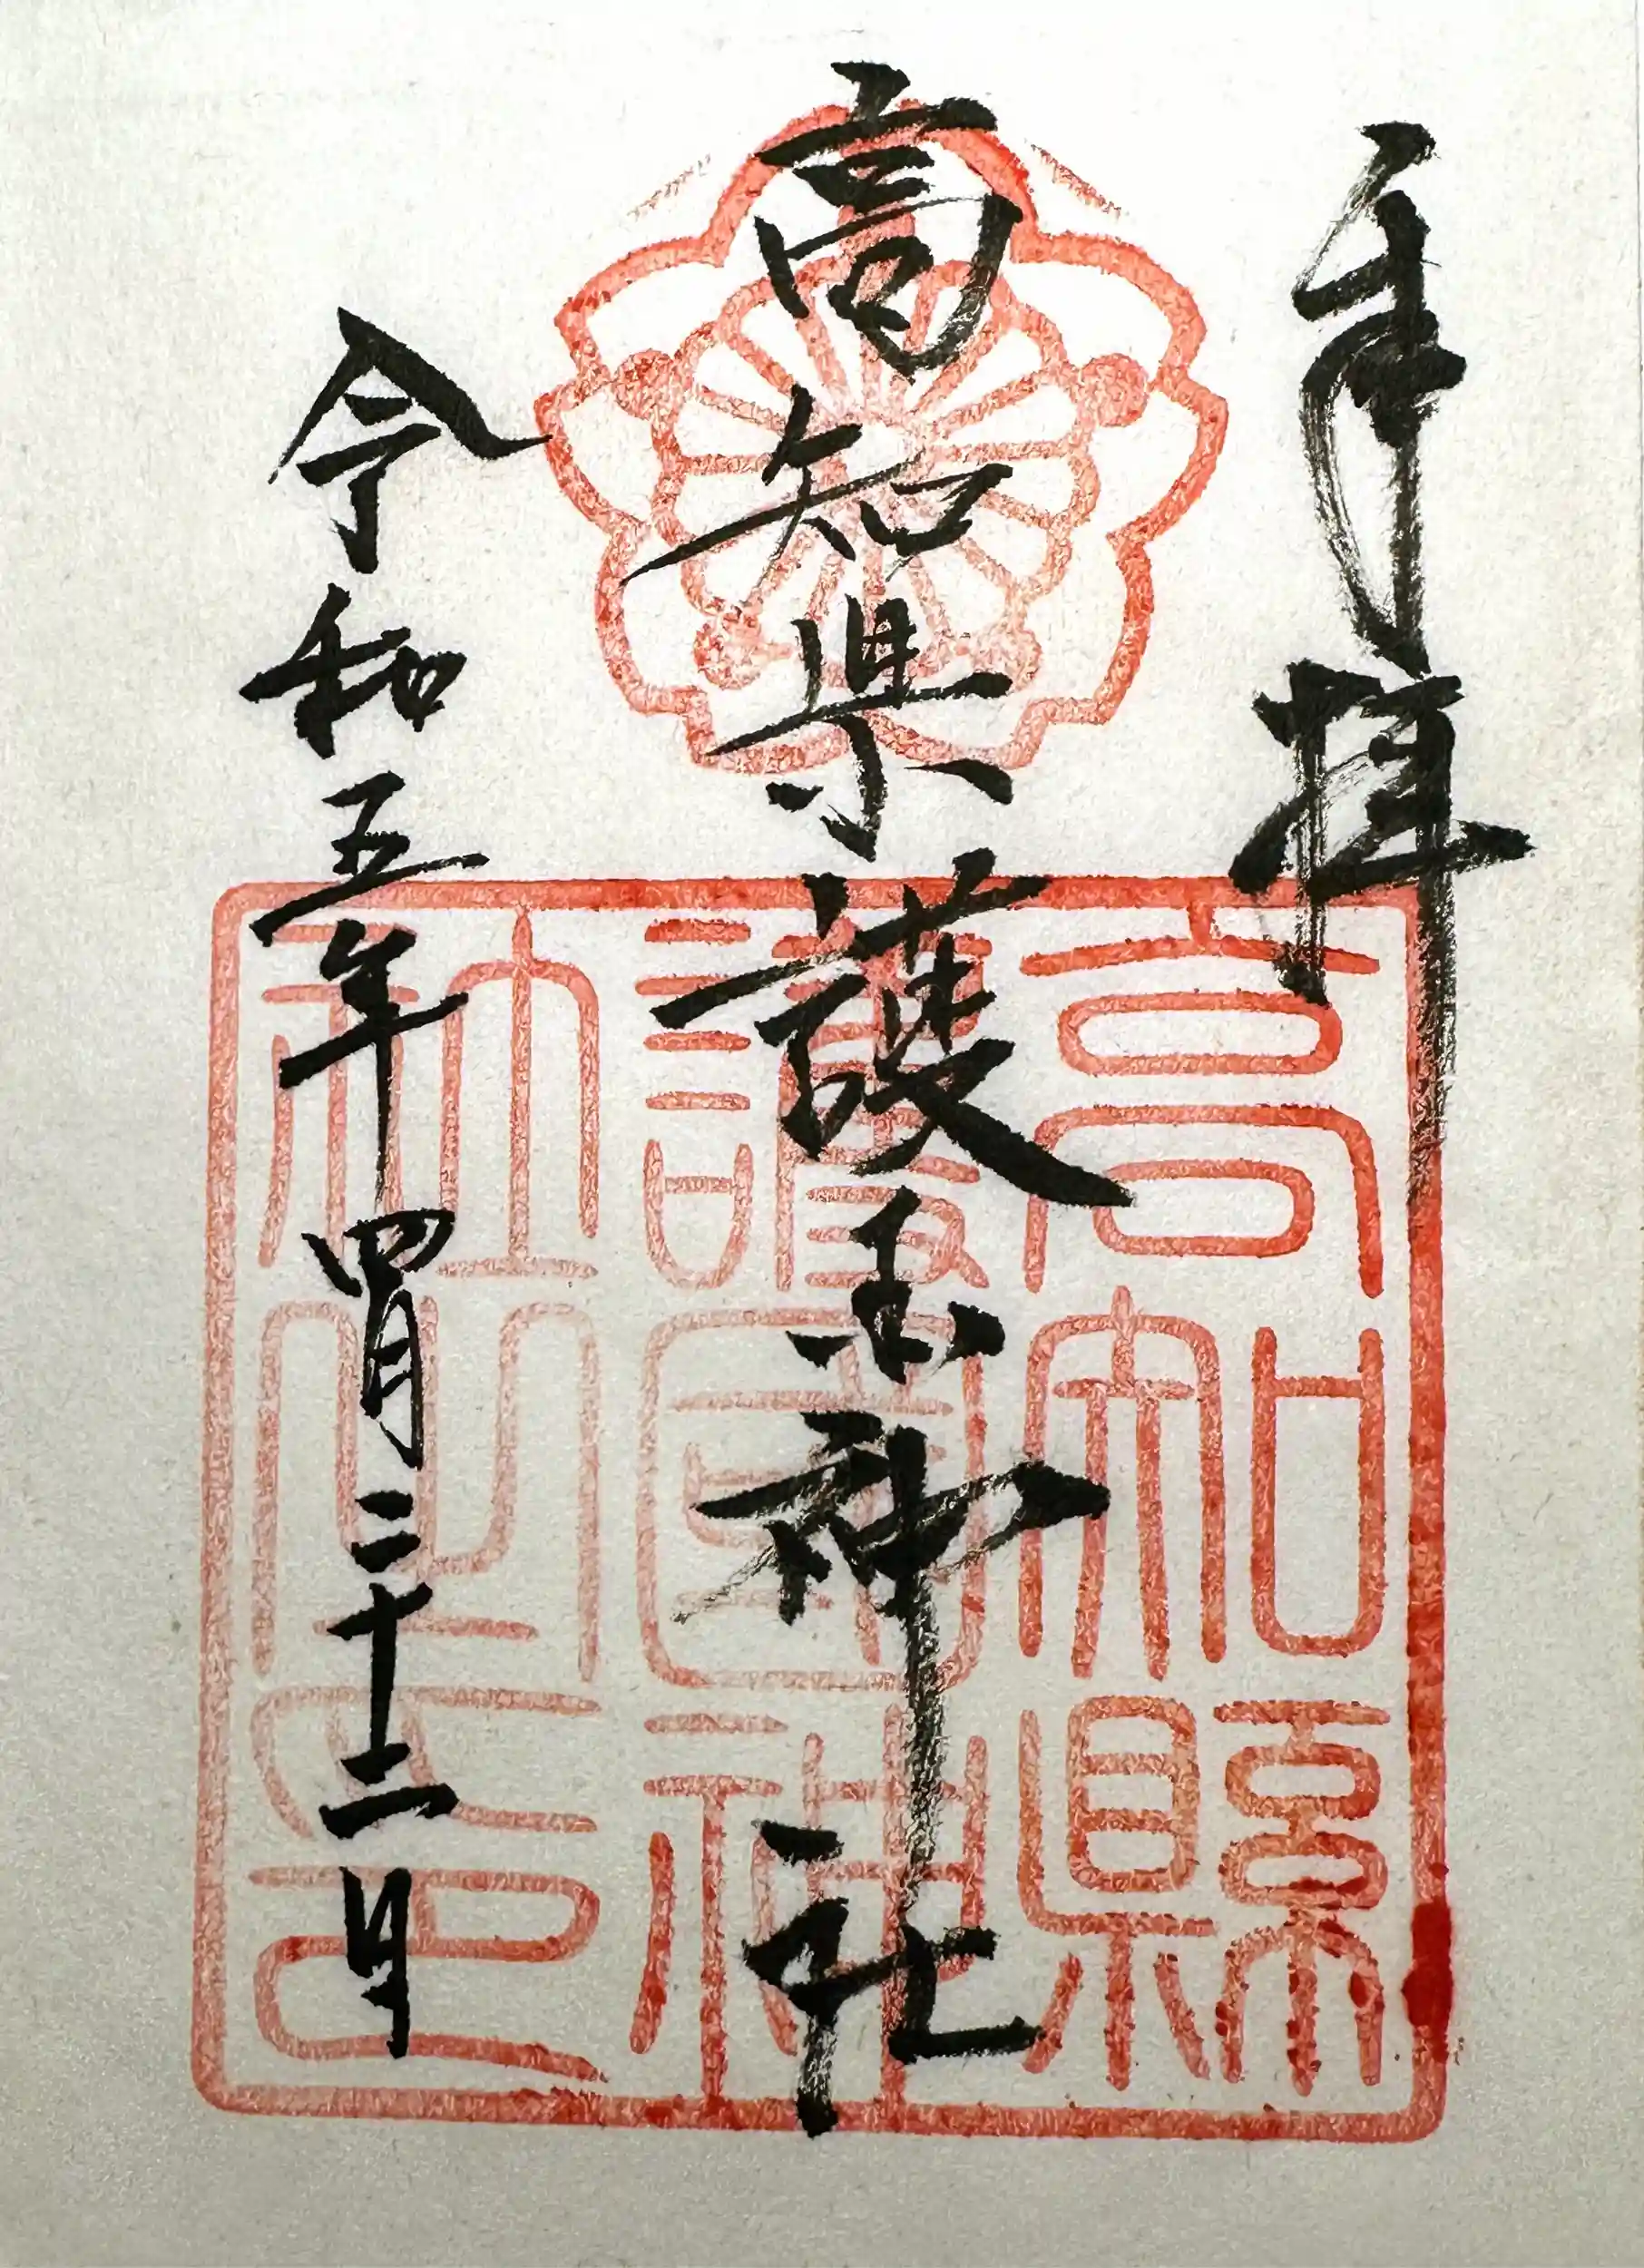 奉拝
高知県護国神社
令和五年四月二十二日
高知縣
護國神
社之印